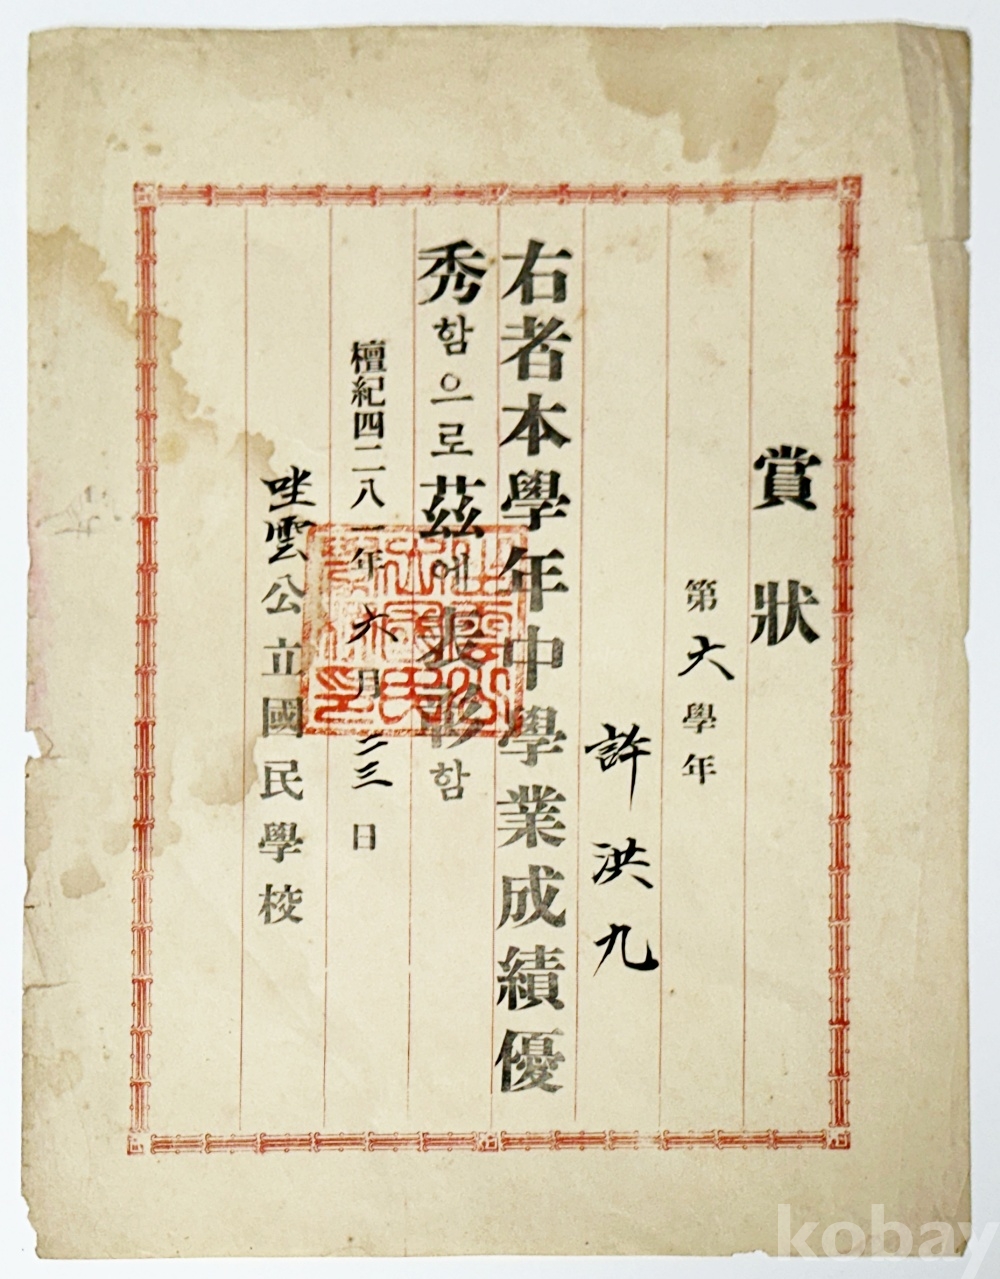 賞狀
第六學年
許洪九
右者本學年中學業成績優
秀함으로茲에表彰함
檀紀四二八一年六月二三日
坐雲公立國民學校
kobay